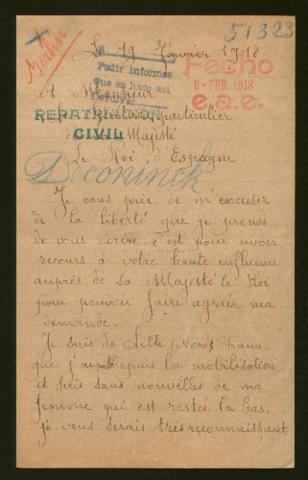 51323
Le 19 Janvier 1918
Pedir informes
que en hace así
Fecho
8 - FEB. 1918
e.a.e.
A Monsieur
le Secrétaire particulier
REPATRIATION
CIVIL
de sa Majesté
Le Roi d'Espagne
Deconinck
Je vous prie de m'excuser
de la liberté que je prends
de vous écrire, c'est pour avoir
recours à votre haute influence
auprès de Sa Majesté le Roi
pour pouvoir faire agréer ma
demande.
Je suis de Lille (Nord)
que j'ai depuis la mobilisation
et suis sans nouvelles de ma
femme qui est restée la bas,
je vous serais très reconnaissant